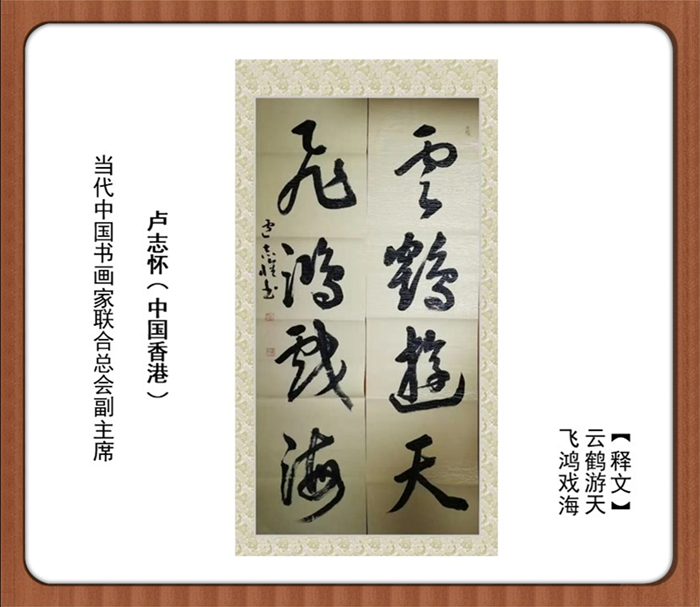 【释文】
云鹤游天
飞鸿戏海
云鶴遊天
飛鴻戏海
卢志怀书
卢志怀（中国香港）
当代中国书画家联合总会副主席